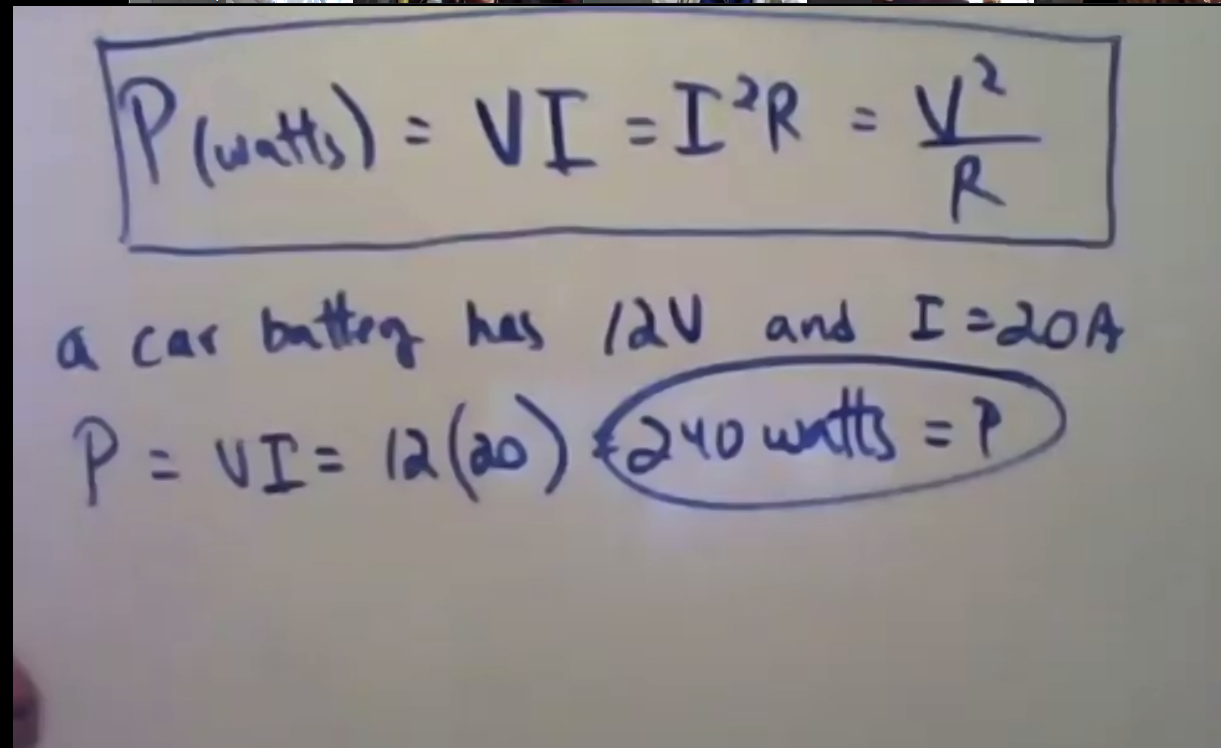 P(watts) = VI = I²R = V²/R
a car battery has 12V and I = 20A
P = VI = 12(20) = 240 watts = P